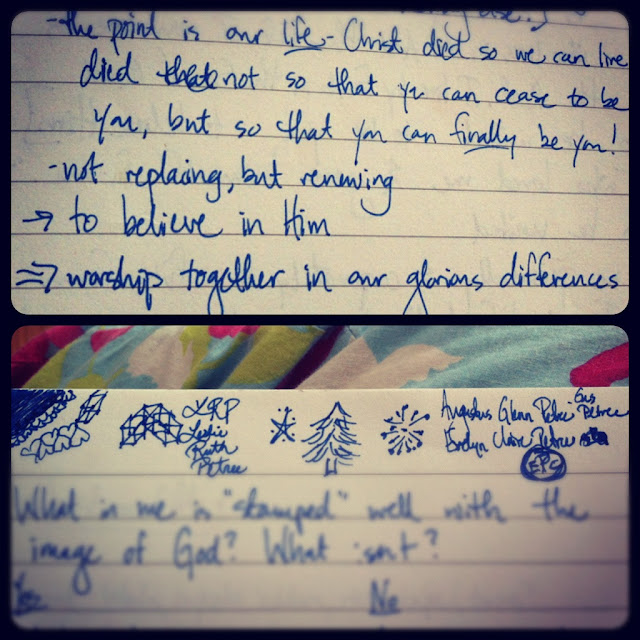 -the point is our life - Christ died so we can live
died not so that you can cease to be
you, but so that you can finally be you!
-not replacing, but renewing
→ to believe in Him
⇒ worship together in our glorious differences
LRP
Leslie
Ruth
Petree
Augustus Glenn Petree
Gus Petree
Evelyn Claire Petree
EPC
What in me is "stamped" well with the
image of God? What isn't?
Yes
No